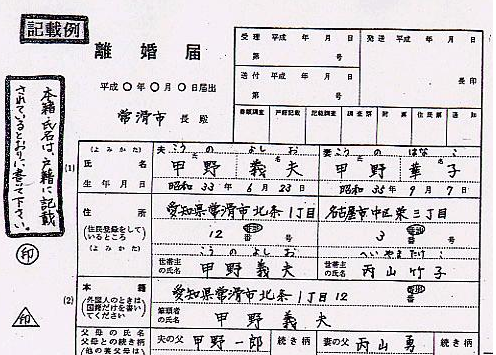 記載例
離婚届
平成〇年〇月〇日届出
常滑市 長殿
受理 平成 年 月 日
第 号
発送 平成 年 月 日
送付 平成 年 月 日
第 号
長印
書類調査 戸籍記載 記載調査 調査票 附票 住民票 通知
本籍、氏名は、戸籍に記載
されているとおりに書いて下さい。
印
印
(1)
(よみかた)
夫 こうの よしお
妻 こうの はなこ
氏名
甲野 義夫
甲野 華子
生年月日
昭和 33年 6月 23日
昭和 35年 9月 7日
住所
(住民登録をして
いるところ)
(よみかた)
愛知県常滑市北条1丁目
12 番 号
名古屋市中区栄三丁目
3 番 号
こうの よしお
世帯主
の氏名 甲野義夫
へいやま たけ
世帯主
の氏名 丙山竹子
(2)
本籍
(外国人のときは
国籍だけを書い
てください)
愛知県常滑市北条1丁目12
筆頭者
の氏名 甲野義夫
父母の氏名
父母との続き柄
(他の養父母は
夫の父 甲野一郎 続き柄
妻の父 丙山勇 続き柄